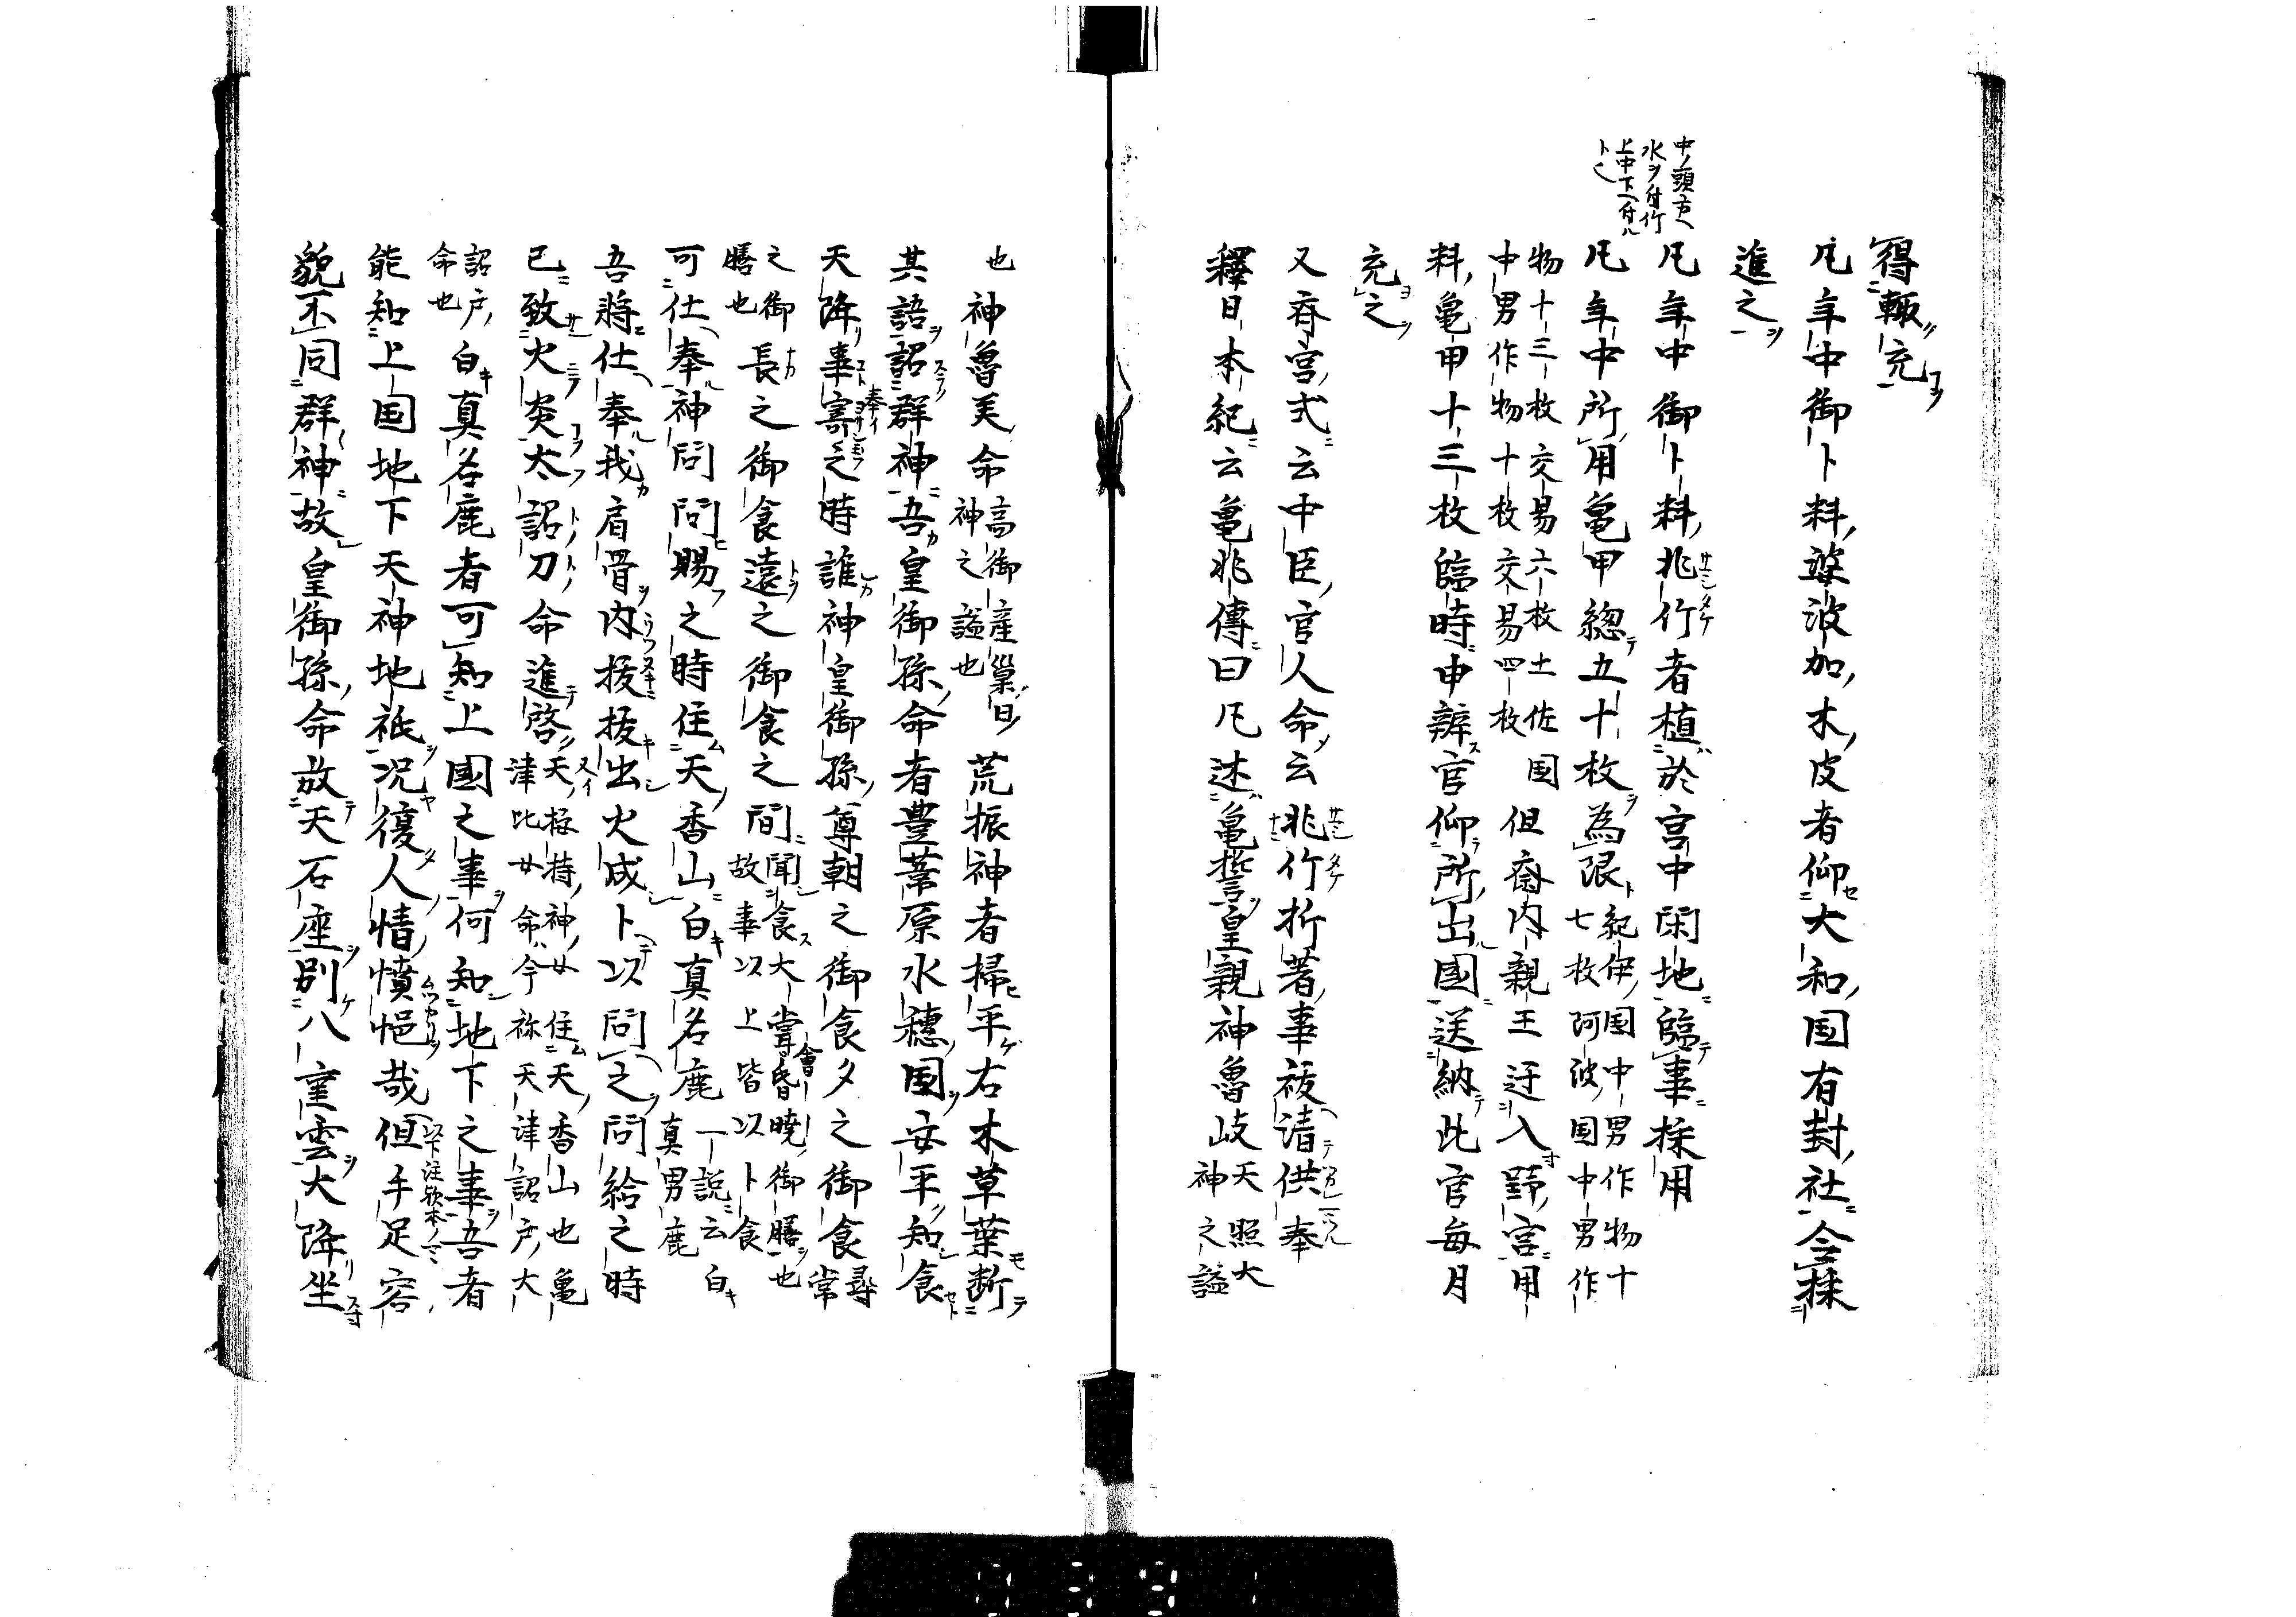 中ノ頭ノ方ヘ
水ヲ付竹
上中下ヘ付ル
ト也
得輙充
凡年中御卜料婆波加木皮者仰大和国有封社令採
進之
凡年中御卜料兆竹者植於宮中閑地臨事採用
凡年中所用亀甲総五十枚為限紀伊国中男作物十
七枚阿波国中男作
物十三枚交易六枚土佐国
中男作物十枚交易四枚但斎内親王迂入野宮用
料亀甲十三枚臨時申辨官仰所出國送納此官毎月
充之
又斎宮式云中臣官人命云兆竹折著事祓清供奉
釋日本紀云亀兆傳曰凡述亀誓皇親神魯岐天照大
神之謚
也神魯美命高御産巣日
神之謚也荒振神者掃平右木草葉断
其語詔群神吾皇御孫命者豊葦原水穂国安平知食
天降事寄之時誰神皇御孫尊朝之御食夕之御食尋
常
之御
膳也長之御食遠之御食之間聞食大嘗會昏暁御膳也
故事以上皆以卜食
可仕奉神問問賜之時住天香山白真名鹿一説云白
真男鹿
吾將仕奉我肩骨内抜抜出火成卜以問之問給之時
已致火炎太詔刀命進啓天㭨持神女住天香山也亀
津比女命今称天津詔戸大
詔戸
命也白真名鹿者可知上國之事何知地下之事吾者
能知上国地下天神地祇况復人情憤悒哉但手足容
貌不同群神故皇御孫命放天石座別八重雲天降坐